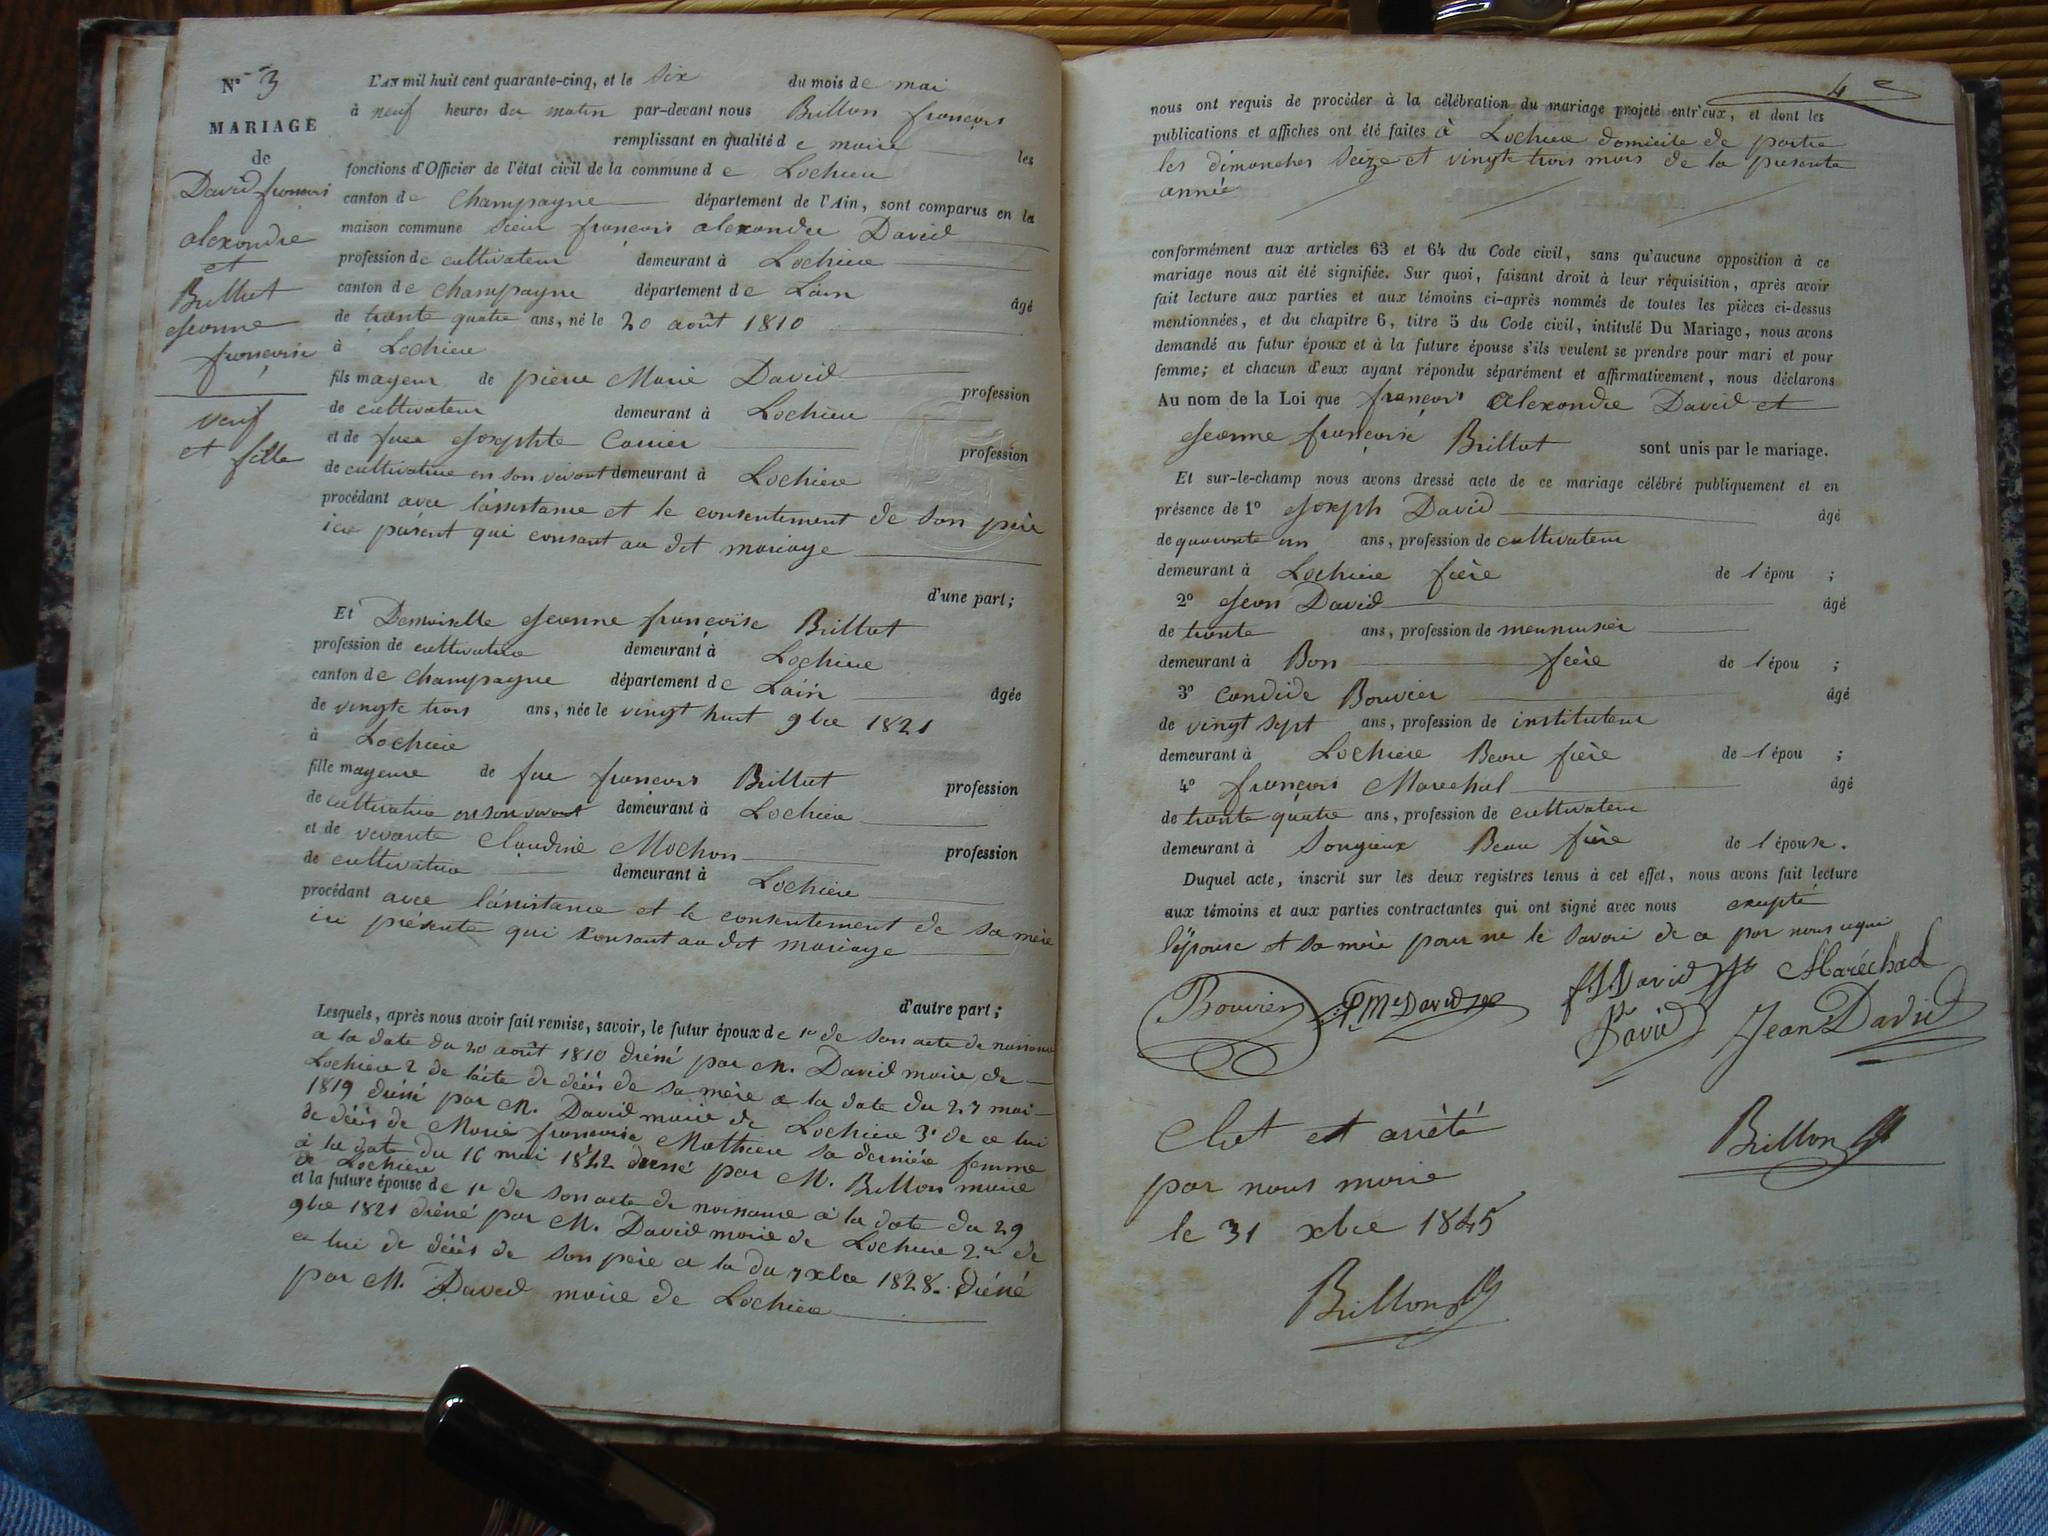 N° 3
MARIAGE
de
David françois
alexandre
et
Brillat
Jeanne
françoise
veuf
et fille
L'AN mil huit cent quarante-cinq, et le six du mois de mai
à neuf heures du matin par-devant nous Brillon françois
remplissant en qualité de maire les
fonctions d'Officier de l'état civil de la commune de Lochieu
canton de Champagne département de l'Ain, sont comparus en la
maison commune Sieur françois alexandre David
profession de cultivateur demeurant à Lochieu
canton de Champagne département de Lain âgé
de trente quatre ans, né le 20 août 1810
à Lochieu
fils mageur de pierre Marie David profession
de cultivateur demeurant à Lochieu
et de feue Josephte Carrier profession
de cultivatrice en son vivant demeurant à Lochieu
procédant avec l'assistance et le consentement de son père
ici présent qui consant au dit mariage
d'une part;
Et Demoiselle Jeanne françoise Brillat
profession de cultivatrice demeurant à Lochieu
canton de Champagne département de Lain âgée
de vingte trois ans, née le vingt huit 9bre 1821
à Lochieu
fille mageure de feu françois Brillat profession
de cultivateur en son vivant demeurant à Lochieu
et de vivante Claudine Mochon profession
de cultivatrice demeurant à Lochieu
procédant avec l'assistance et le consentement de sa mère
ici présente qui consant au dit mariage
d'autre part;
Lesquels, après nous avoir fait remise, savoir, le futur époux de 1er de son acte de naissance
a la date du 20 août 1810 dréssé par M. David maire de
Lochieu 2 de l'acte de décès de sa mère a la date du 27 mai
1819 dréssé par M. David maire de Lochieu 3° de ce lui
de décès de Marie françoise Mathieu sa dernière femme
à la date du 16 mai 1842 dressé par M. Brillon maire
de Lochieu
et la future épouse de 1er de son acte de naissance à la date du 29
9bre 1821 dréssé par M. David maire de Lochieu 2 de
ce lui de décès de son père a la du 7 xbre 1828. dréssé
par M. David maire de Lochieu
4
nous ont requis de procéder à la célébration du mariage projeté entr'eux, et dont les
publications et affiches ont été faites à Lochieu domicile de partie
les dimanches seize et vingte trois mars de la présente
année
conformément aux articles 63 et 64 du Code civil, sans qu'aucune opposition à ce
mariage nous ait été signifiée. Sur quoi, faisant droit à leur réquisition, après avoir
fait lecture aux parties et aux témoins ci-après nommés de toutes les pièces ci-dessus
mentionnées, et du chapitre 6, titre 5 du Code civil, intitulé Du Mariage, nous avons
demandé au futur époux et à la future épouse s'ils veulent se prendre pour mari et pour
femme; et chacun d'eux ayant répondu séparément et affirmativement, nous déclarons
Au nom de la Loi que françois Alexandre David et
Jeanne françoise Brillat sont unis par le mariage.
Et sur-le-champ nous avons dressé acte de ce mariage célébré publiquement et en
présence de 1° Joseph David âgé
de quarante un ans, profession de cultivateur
demeurant à Lochieu frère de l'épou ;
2° Jean David âgé
de trente ans, profession de menuisier
demeurant à Bon frère de l'épou ;
3° Candide Bouvier âgé
de vingt sept ans, profession de instituteur
demeurant à Lochieu Beau frère de l'épou ;
4° françois Marechal âgé
de trente quatre ans, profession de cultivateur
demeurant à Songieux Beau frère de l'épouse.
Duquel acte, inscrit sur les deux registres tenus à cet effet, nous avons fait lecture
aux témoins et aux parties contractantes qui ont signé avec nous excepté
l'épouse et sa mère pour ne le savoir de ce par nous
Bouvier P Me David David Maréchal
David Jean David
Clot et arrèté
par nous maire
le 31 xbre 1845
Brillon
Brillon